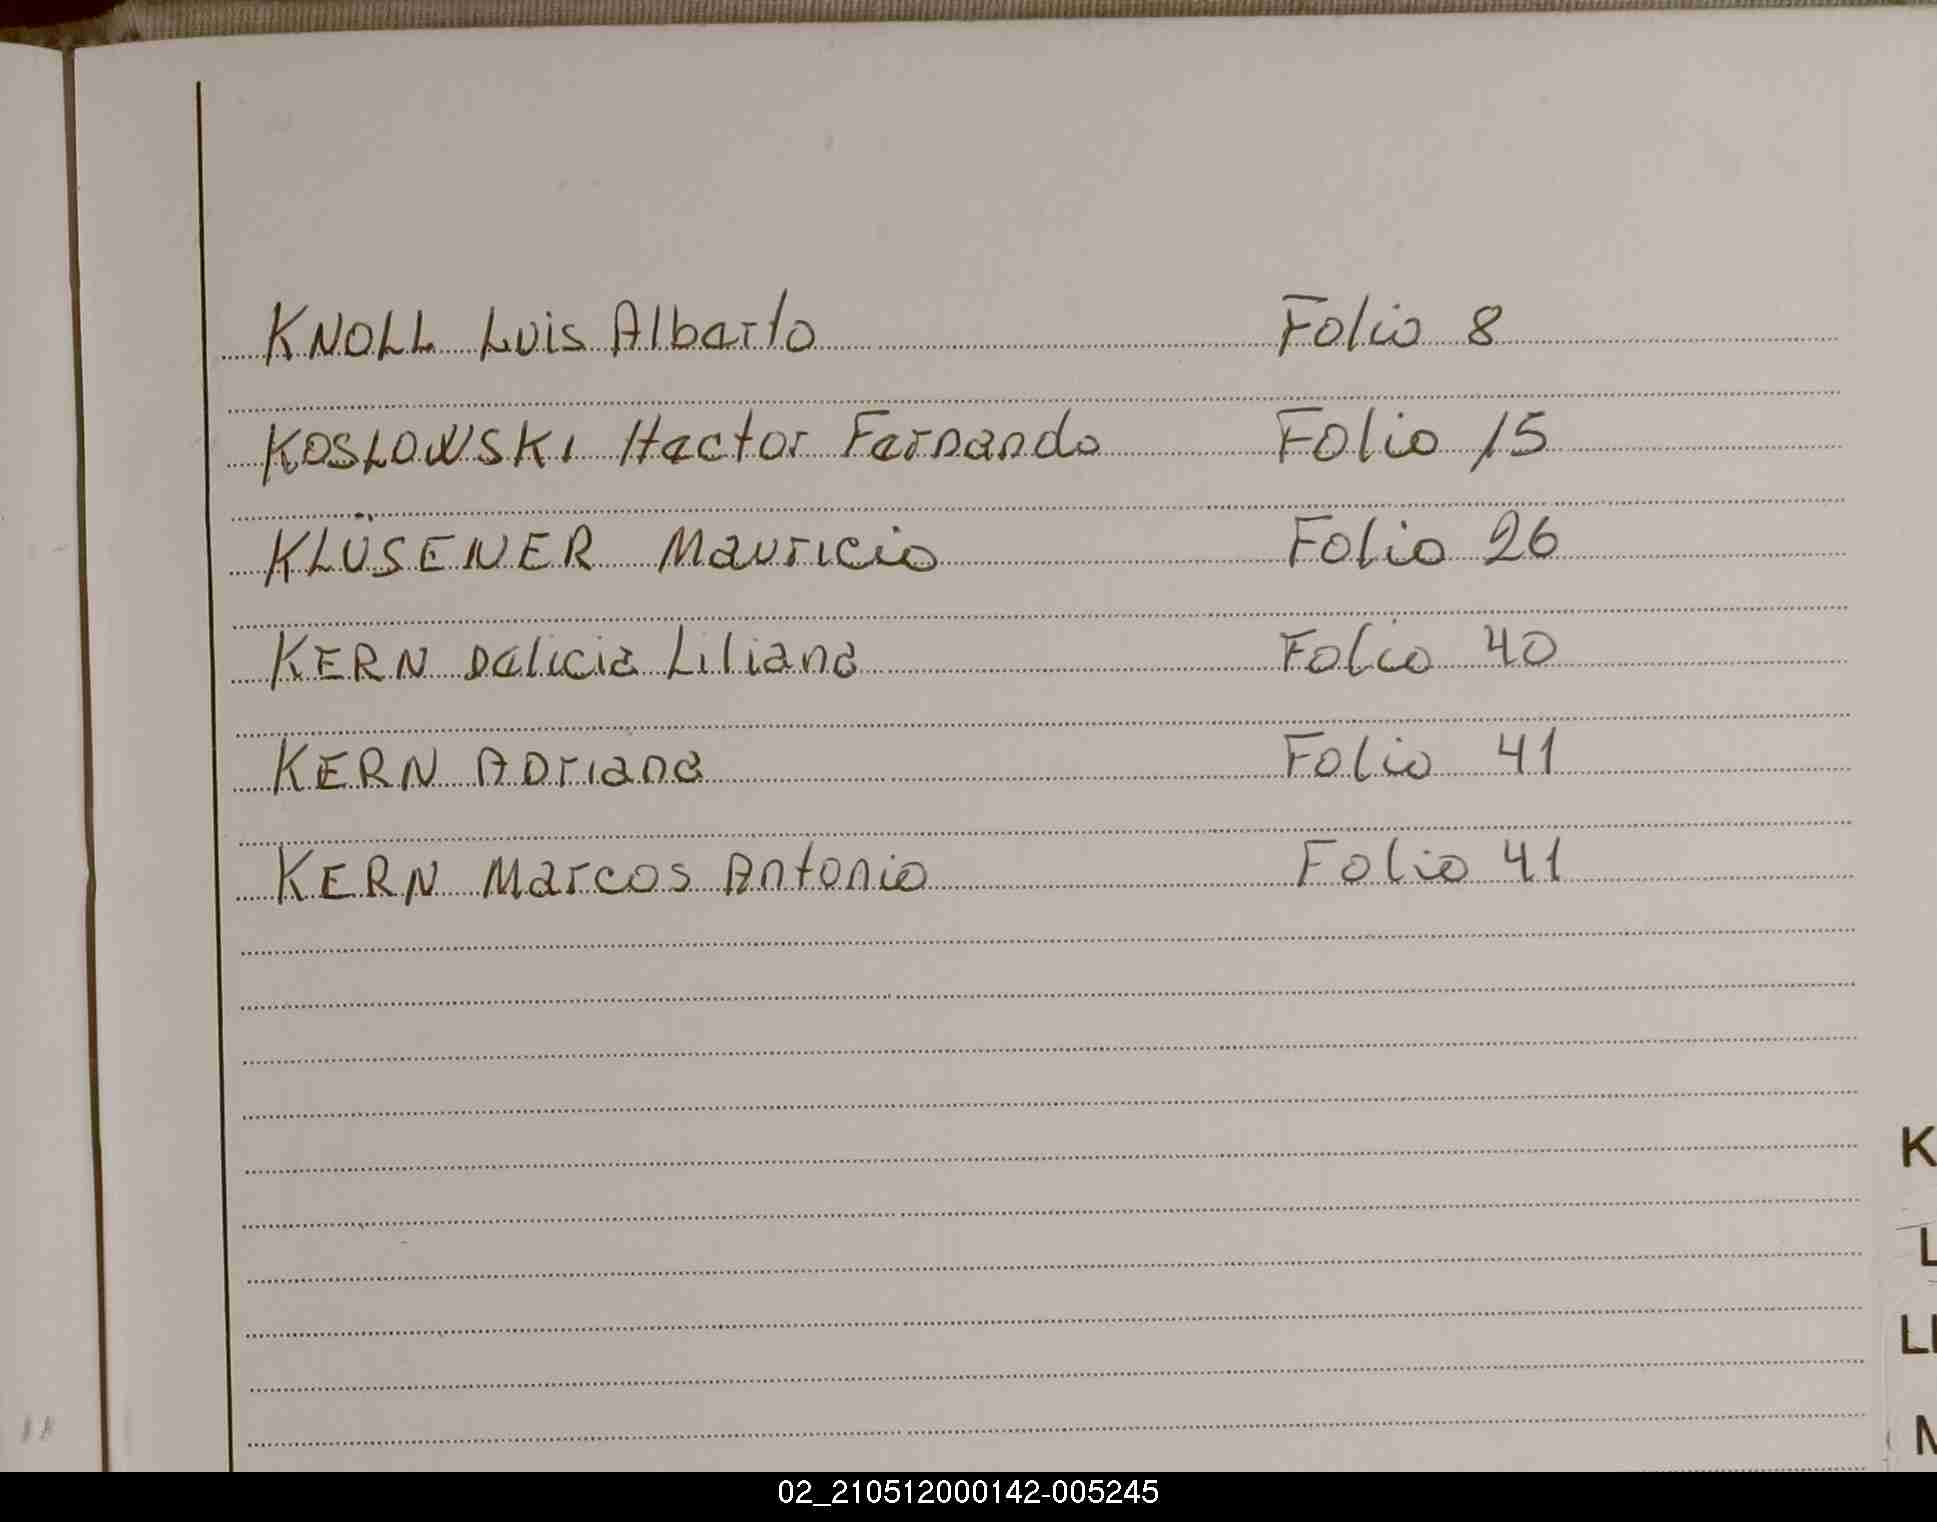 KNOLL Luis Alberto Folio 8
KOSLOWSKI Hector Fernando Folio 15
KLÜSENER Mauricio Folio 26
KERN Delicia Liliana Folio 40
KERN ADriana Folio 41
KERN Marcos Antonio Folio 41
K
L
LL
M
02_210512000142-005245